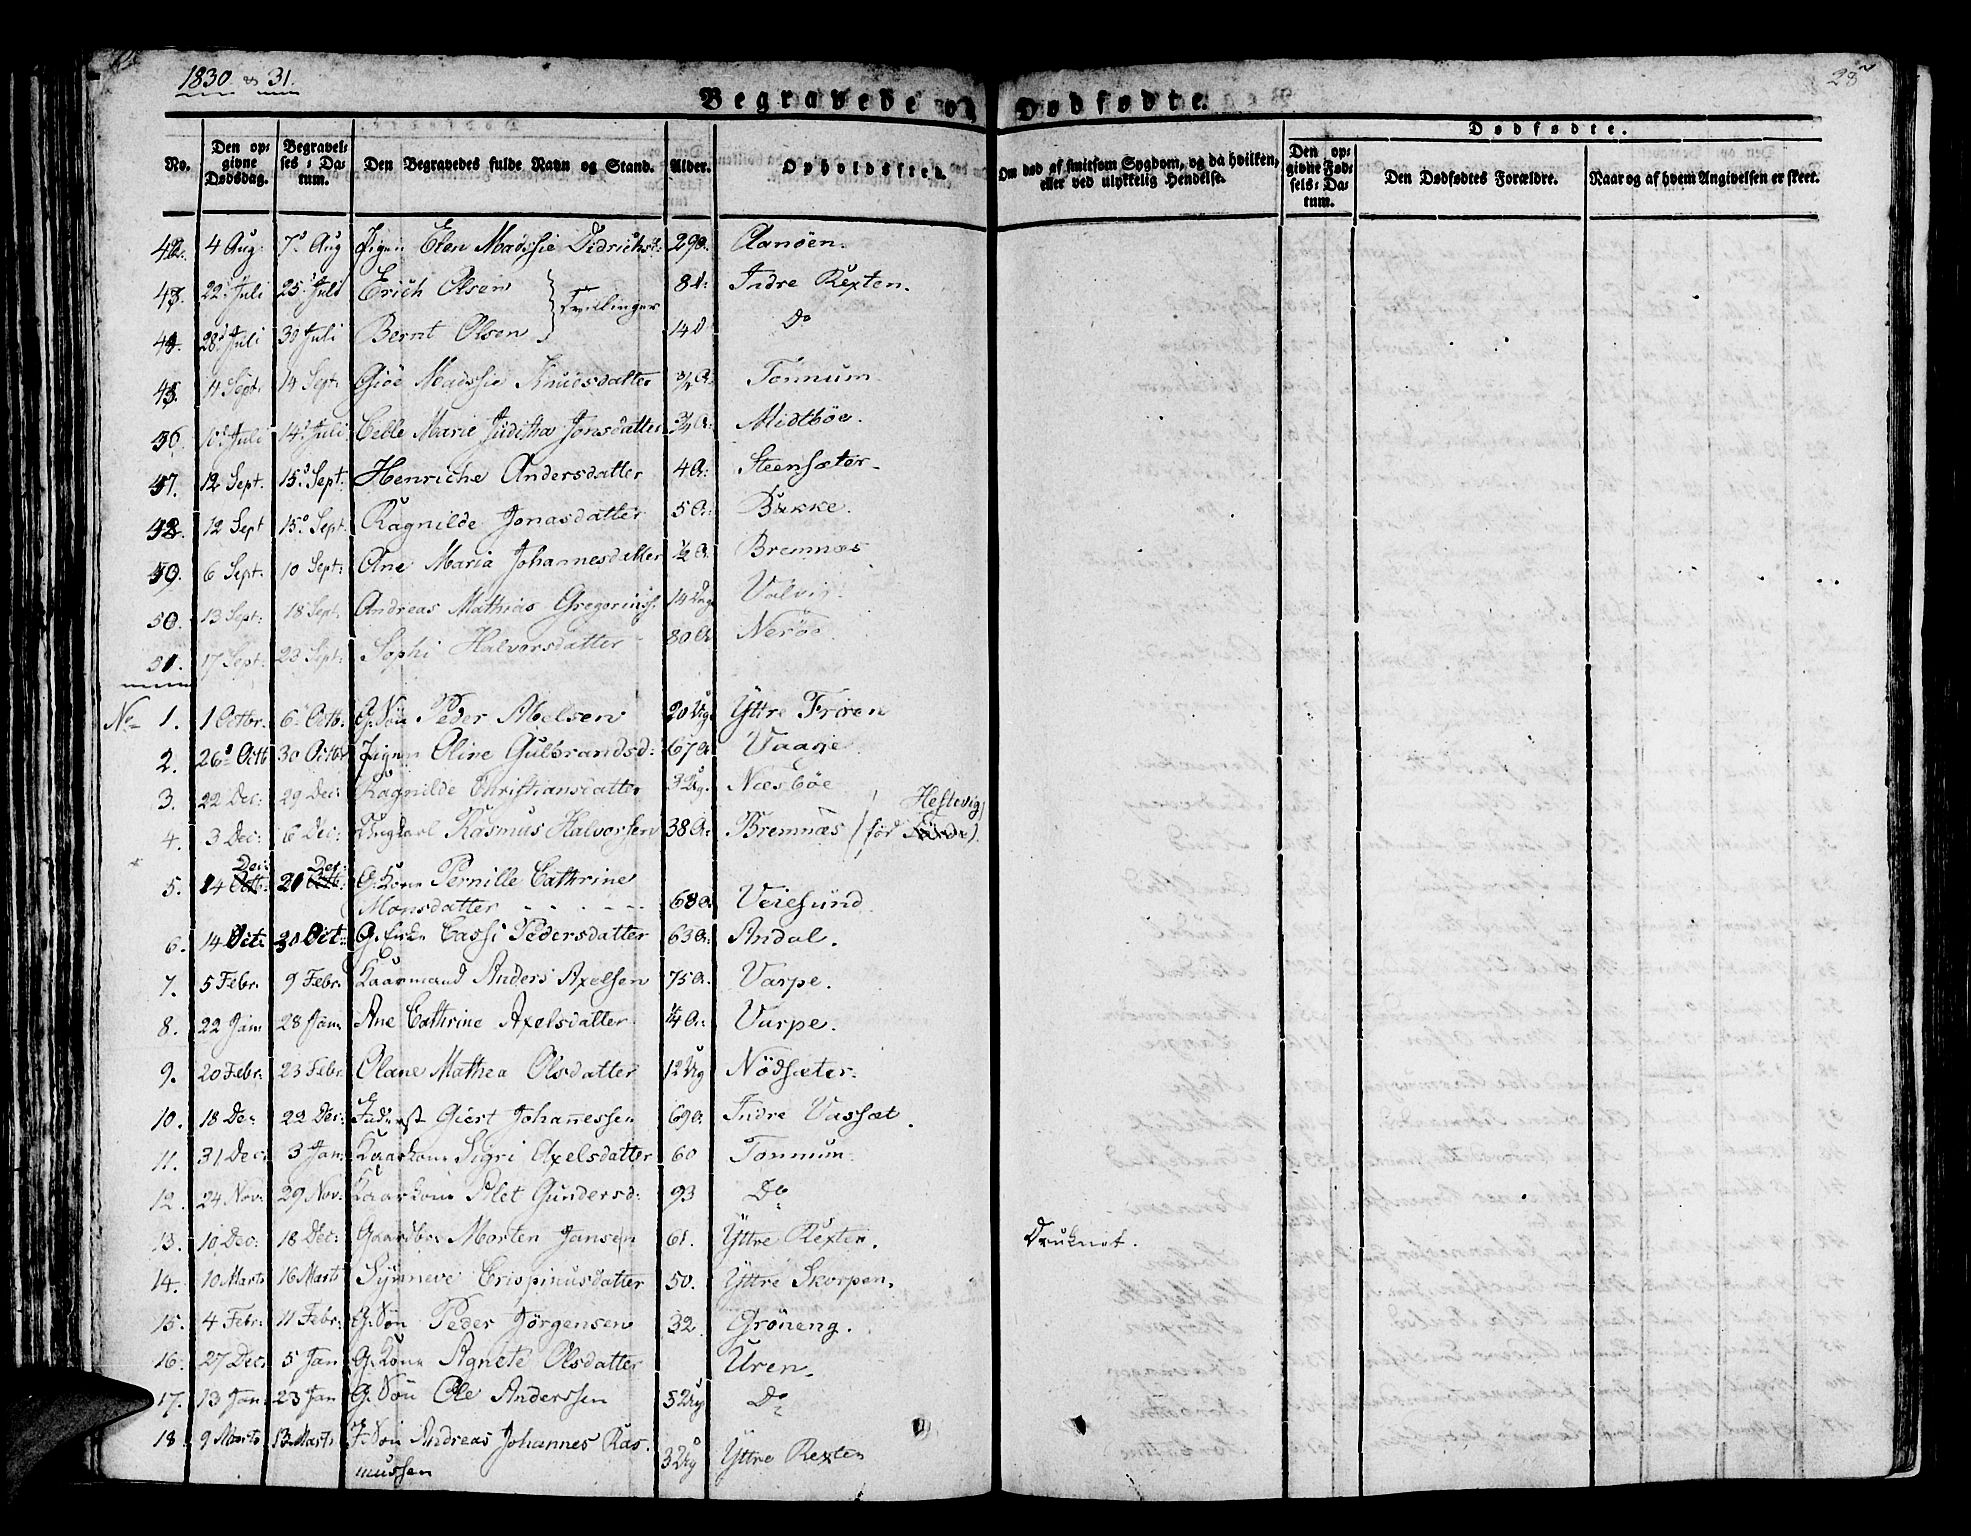 1830 & 31.
28
Begravede og Dødfødte.
Dødfødte.
No. Den opgivne Dødsdag. Begravelses-Datum. Den Begravedes fulde Navn og Stand. Alder. Opholdssted. Om død af smitsom Sygdom, og da hvilken, eller ved ulykkelig Hendelse. Den opgivne Fødsels-Datum. Den Dødfødtes Forældre. Naar og af hvem Angivelsen er skeet.
42. 4 Aug: 7d Aug Pigen Elen Madssie Didrichsd: 29 A. Aanöen.
43. 22 Juli 25 Juli Erich Olsen 8 d. Indre Rexten.
Tvillinger
44. 28 Juli 30 Juli Bernt Olsen 14 D Do
45. 11 Sept. 14 Sept: Giöe Madssie Knudsdatter 3/4 A. Tonnum
46. 10 Juli 14 Juli Celle Marie Juditha Jonsdatter 3/4 A: Midtböe.
47. 12 Sept. 15 Sept: Henriche Andersdatter 4 A: Steensæter
48. 12 Sept 15 Sept. Ragnilde Jonasdatter 5 A: Bakke.
49. 6 Sept. 10 Sept: Ane Maria Johannesdatter 1/2 A. Bremnæs
50. 13 Sept: 18 Sept. Andreas Mathias Gregoriuss. 14 Ug
51. 17 Sept: 23 Sept: Sophi Halvorsdatter 80 A Neröe.
No 1. 1 Octbr. 6 Octb: G. Sön Peder Abelsen 20 Ug Yttre Frören
2. 26 Octb 30 Octbr Pigen Oline Gulbrandsd: 67 A Vaage.
3. 22 Dec: 29 Dec: Ragnilde Christiansdatter 3 Ug. Næsböe
Hestevig
4. 3 Dec: 6 Dec: Ungkarl Rasmus Halvorsen 38 A: Bremnæs (föd
Dec: Dec:
5. 14 Octb. 21 Octb. G. Kone Pernille Cathrine
Monsdatter 68 A. Veiesund
6. 14 Oct: Oct: G. Enke Cassi Pedersdatter 63 A: Andal.
7. 5 Febr. 9 Febr. Kaarmand Anders Axelsen 75 A. Varpe.
8. 22 Jan 28 Jan Ane Cathrine Axelsdatter 1/4 A: Varpe.
9. 20 Febr: 23 Febr. Olane Mathea Olsdatter 12 Ug Nödsæter:
10. 18 De 22 Dec: Inderst Giert Johanessen 69 A. Indre Vassæt.
11. 31 Dec: 3 Jan: Kaarkone Sigri Axelsdatter 60 Tonnum
12. 24. Nov. 29 Nov: Kaarkone Gundersd: 93 Do
13. 10 Dec: 18 Dec: Gaardbr Morten Jansen 61. Yttre Rexten. Druknet.
14. 10 Marts 16 Marts Synneve Crispinusdatter 50. Yttre Skorpen.
15. 4 Febr: 11 Febr: G. Sön Peder Jörgensen 32. Gröneng.
16. 27 Dec. 5 Jan G. Kone Agnete Olsdatter Uren.
17. 13 Jan 23 Jan G. Sön Ole Anderssen 5 Ug Do
18. 9 Marts 13 Marts Sön Andreas Johannes Ras-
mussen 3 Ug Yttre Rexten